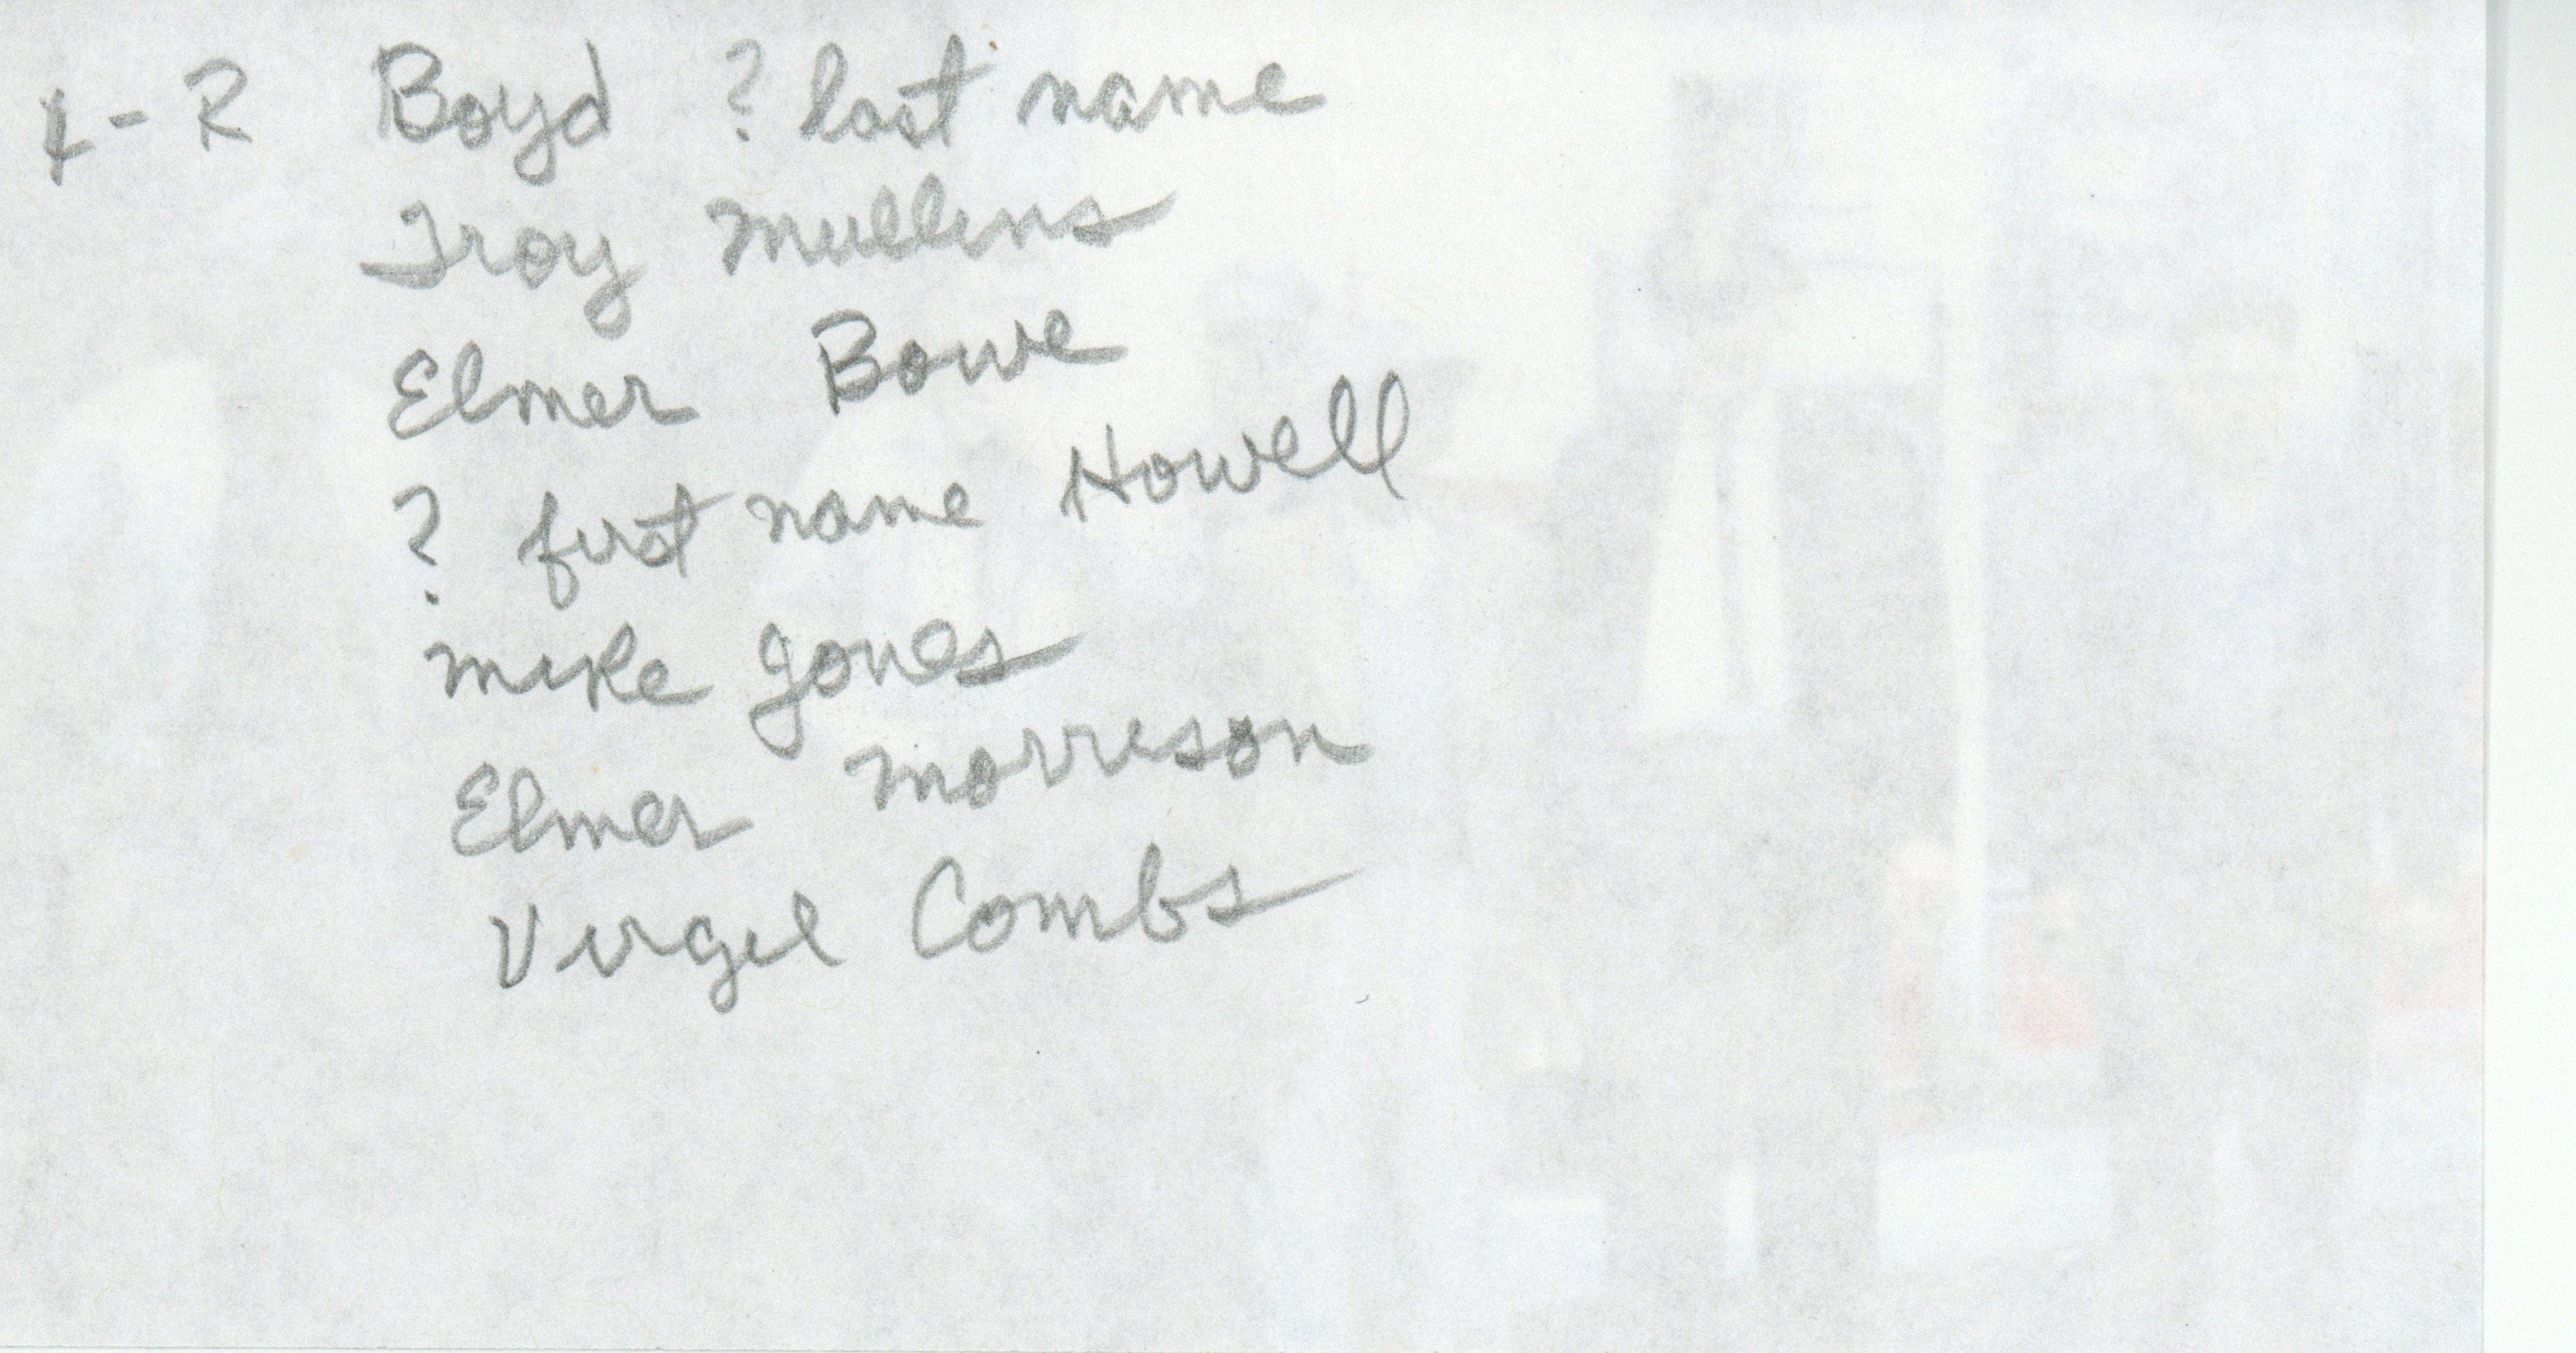 L-R Boyd ? last name
Troy Mullins
Elmer Bowe
? first name Howell
Mike Jones
Elmer Morrison
Virgil Combs